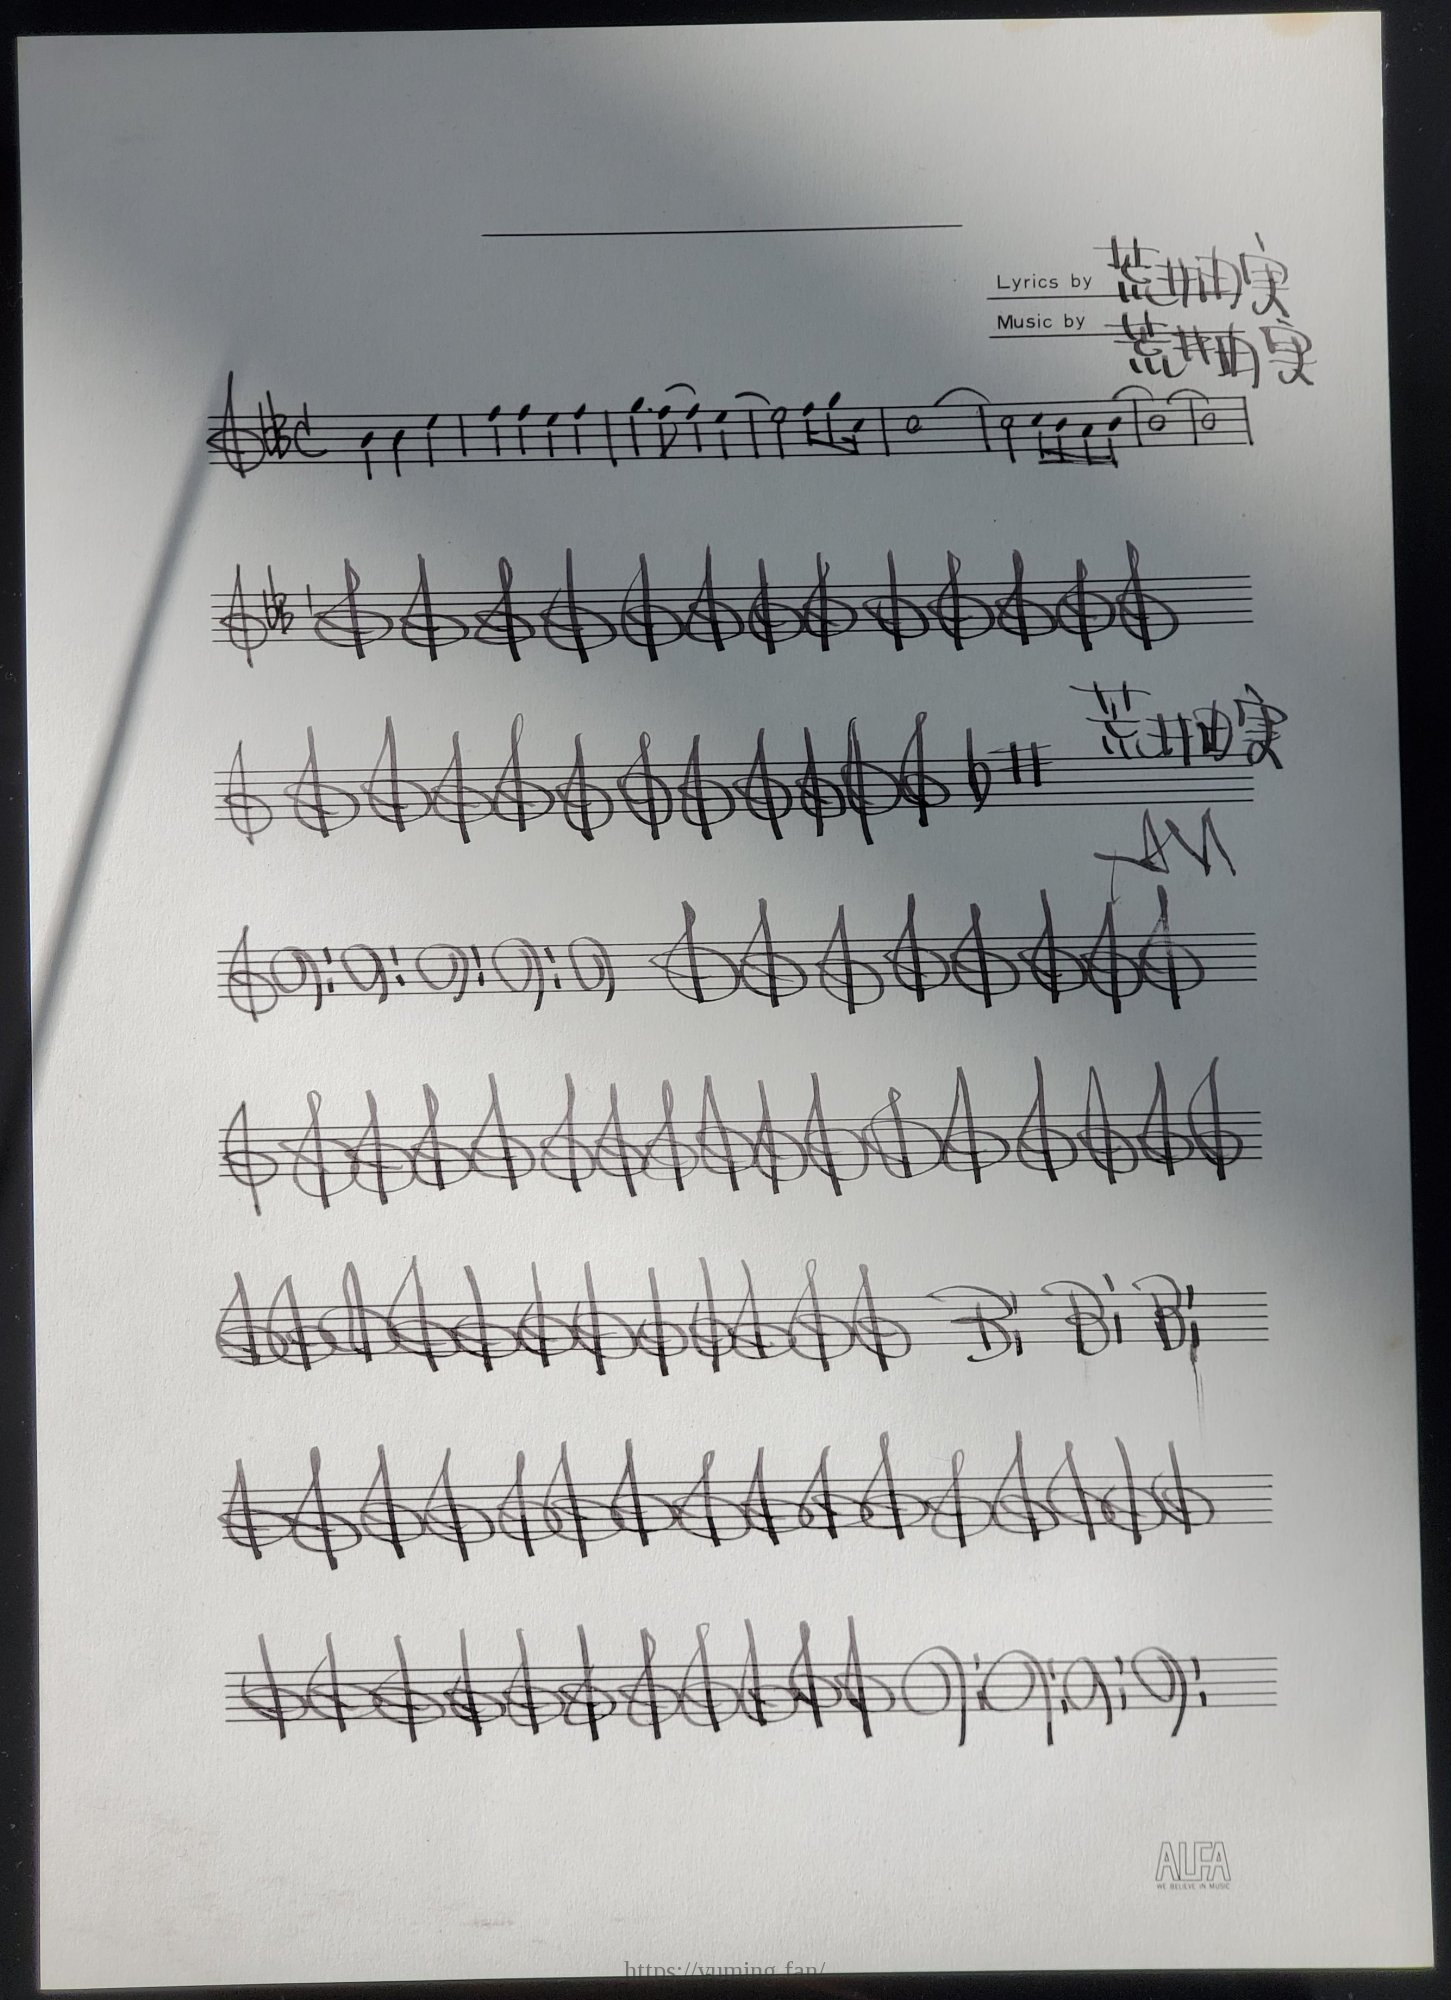 Lyrics by 荒井由実
Music by 荒井由実
荒井由実
ALFA
WE BELIEVE IN MUSIC
https://yuming.fan/